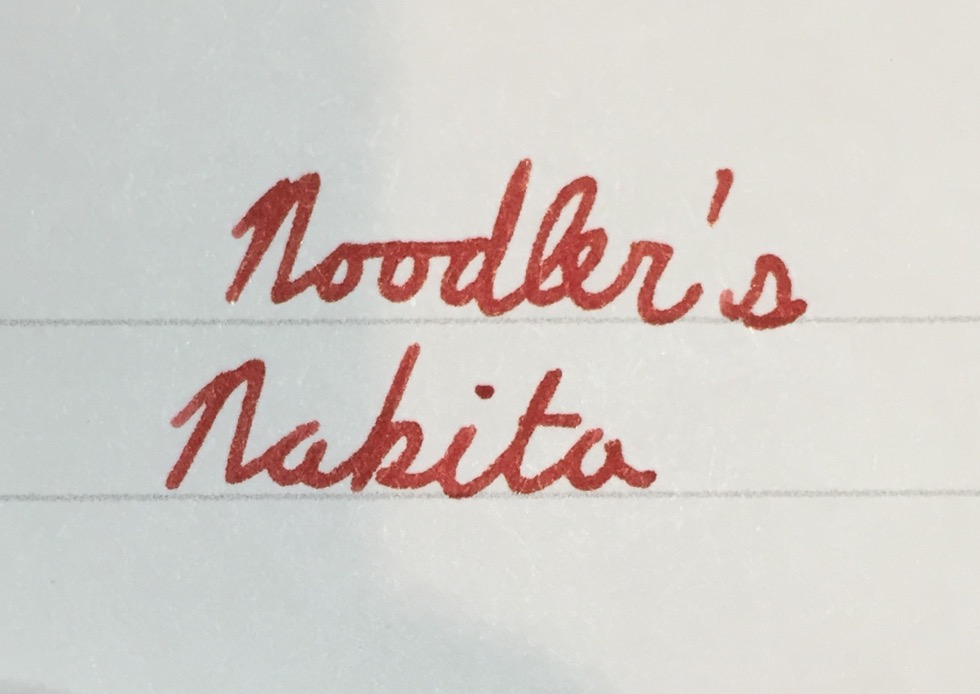 Noodler's
Nakita